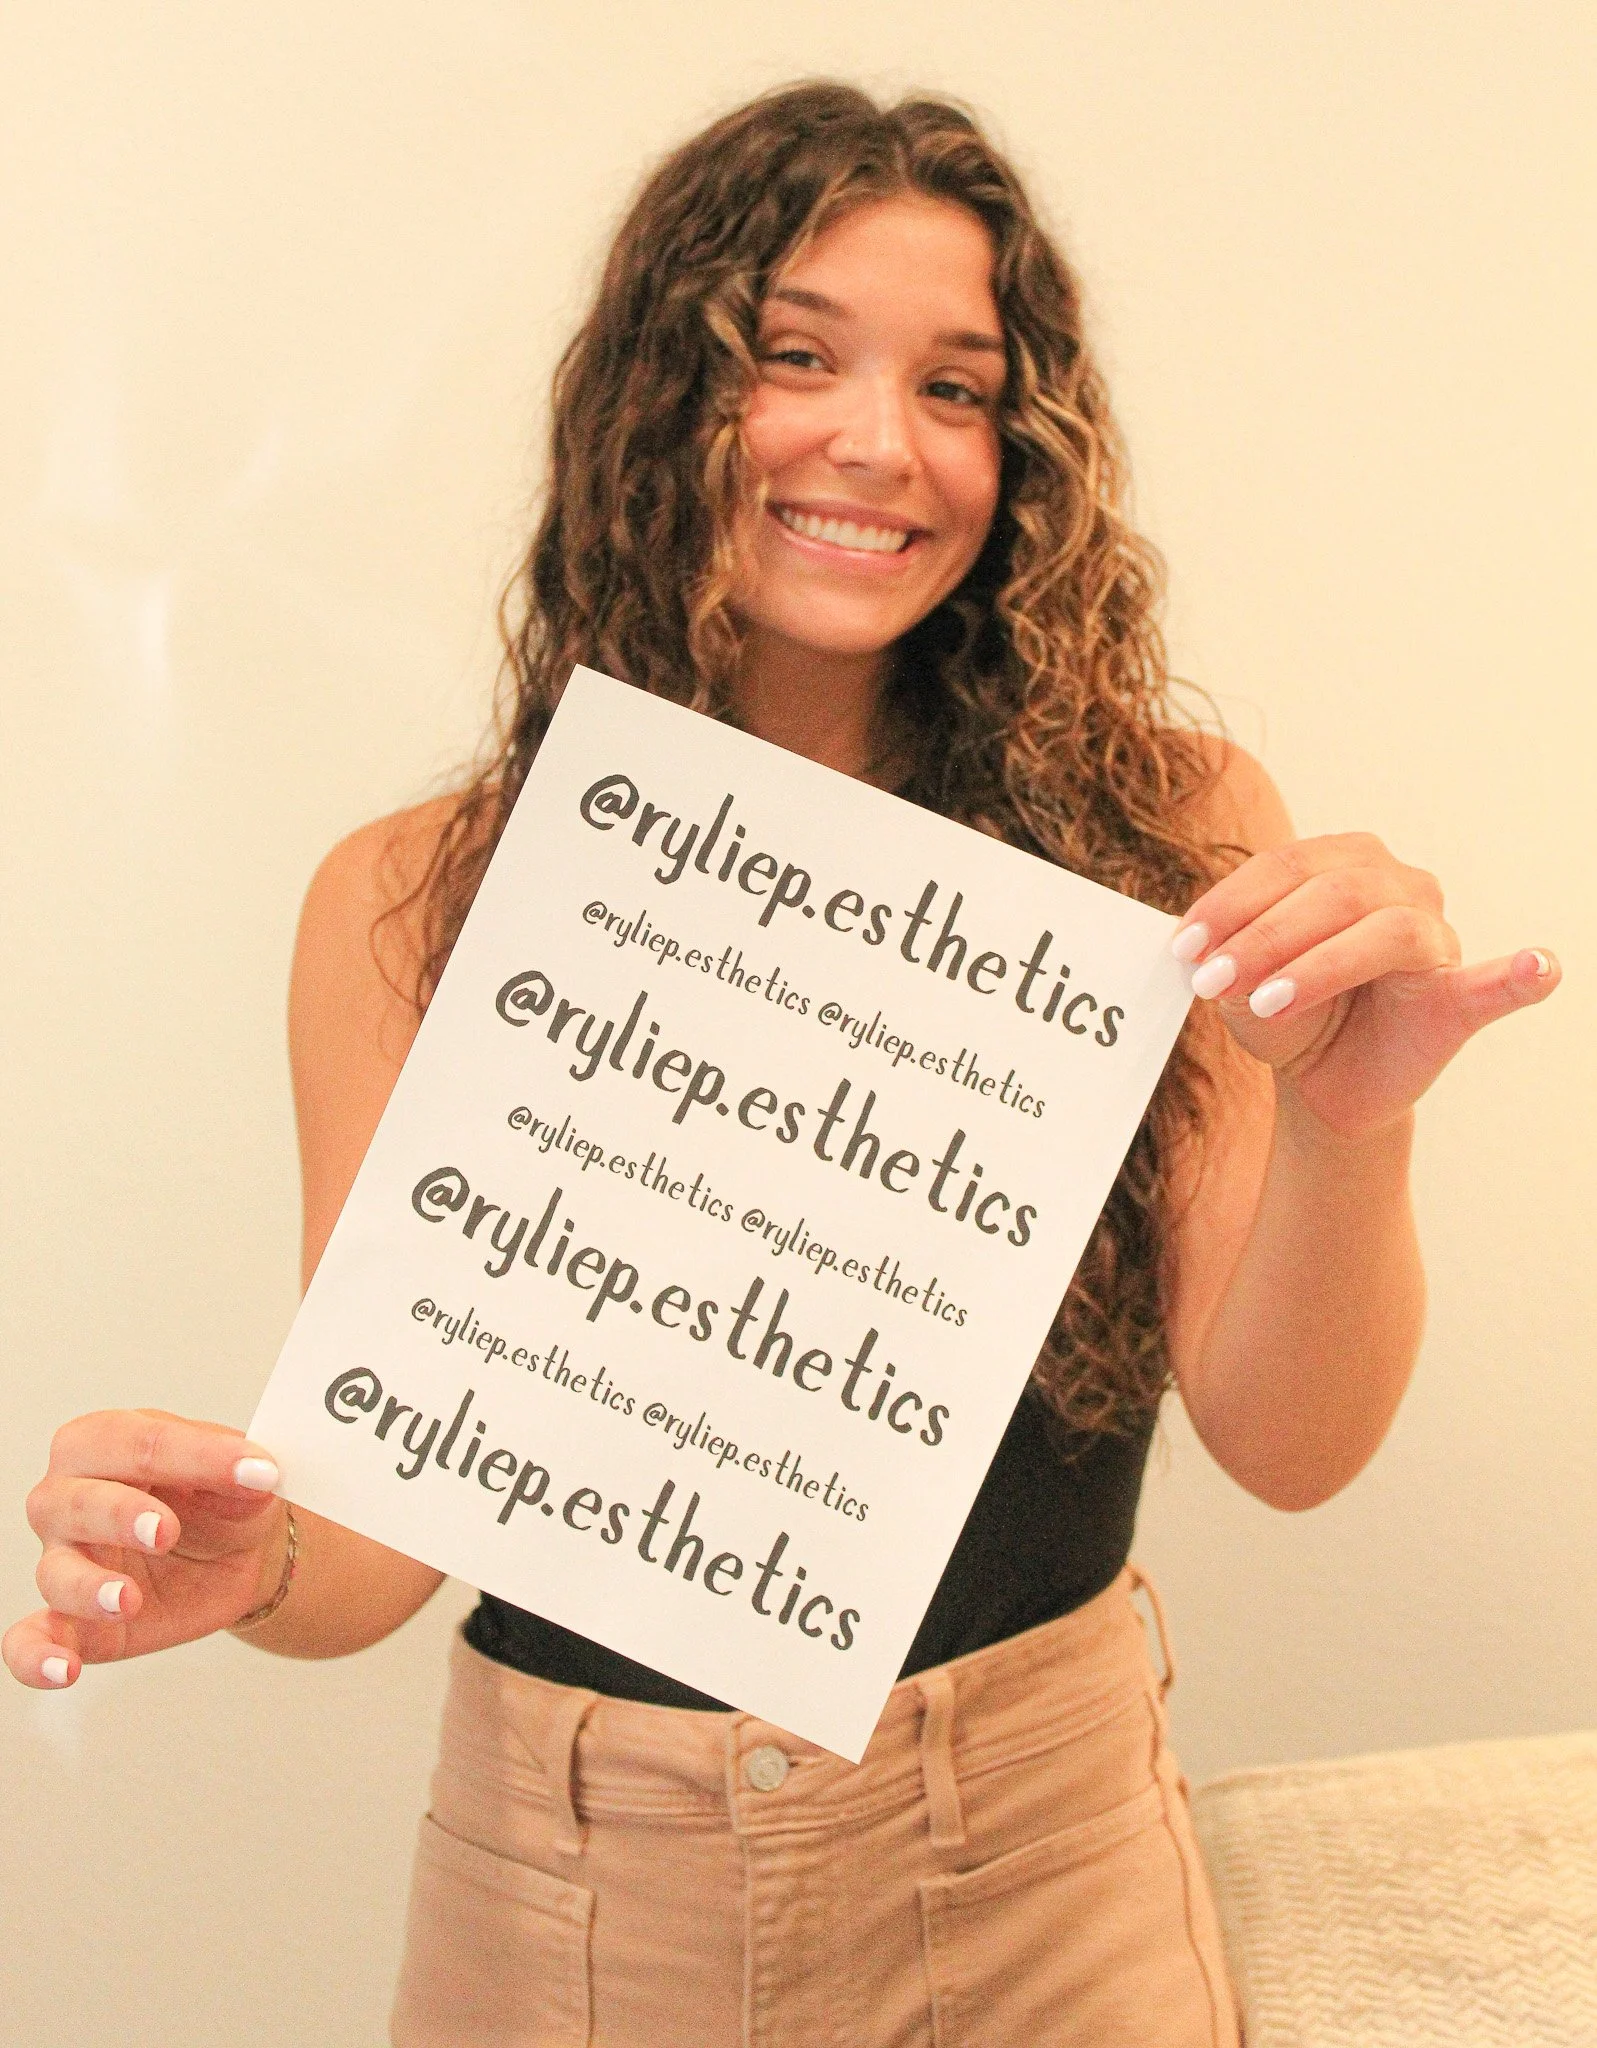 @ryliep.esthetics
@ryliep.esthetics @ryliep.esthetics
@ryliep.esthetics
@ryliep.esthetics @ryliep.esthetics
@ryliep.esthetics
@ryliep.esthetics @ryliep.esthetics
@ryliep.esthetics